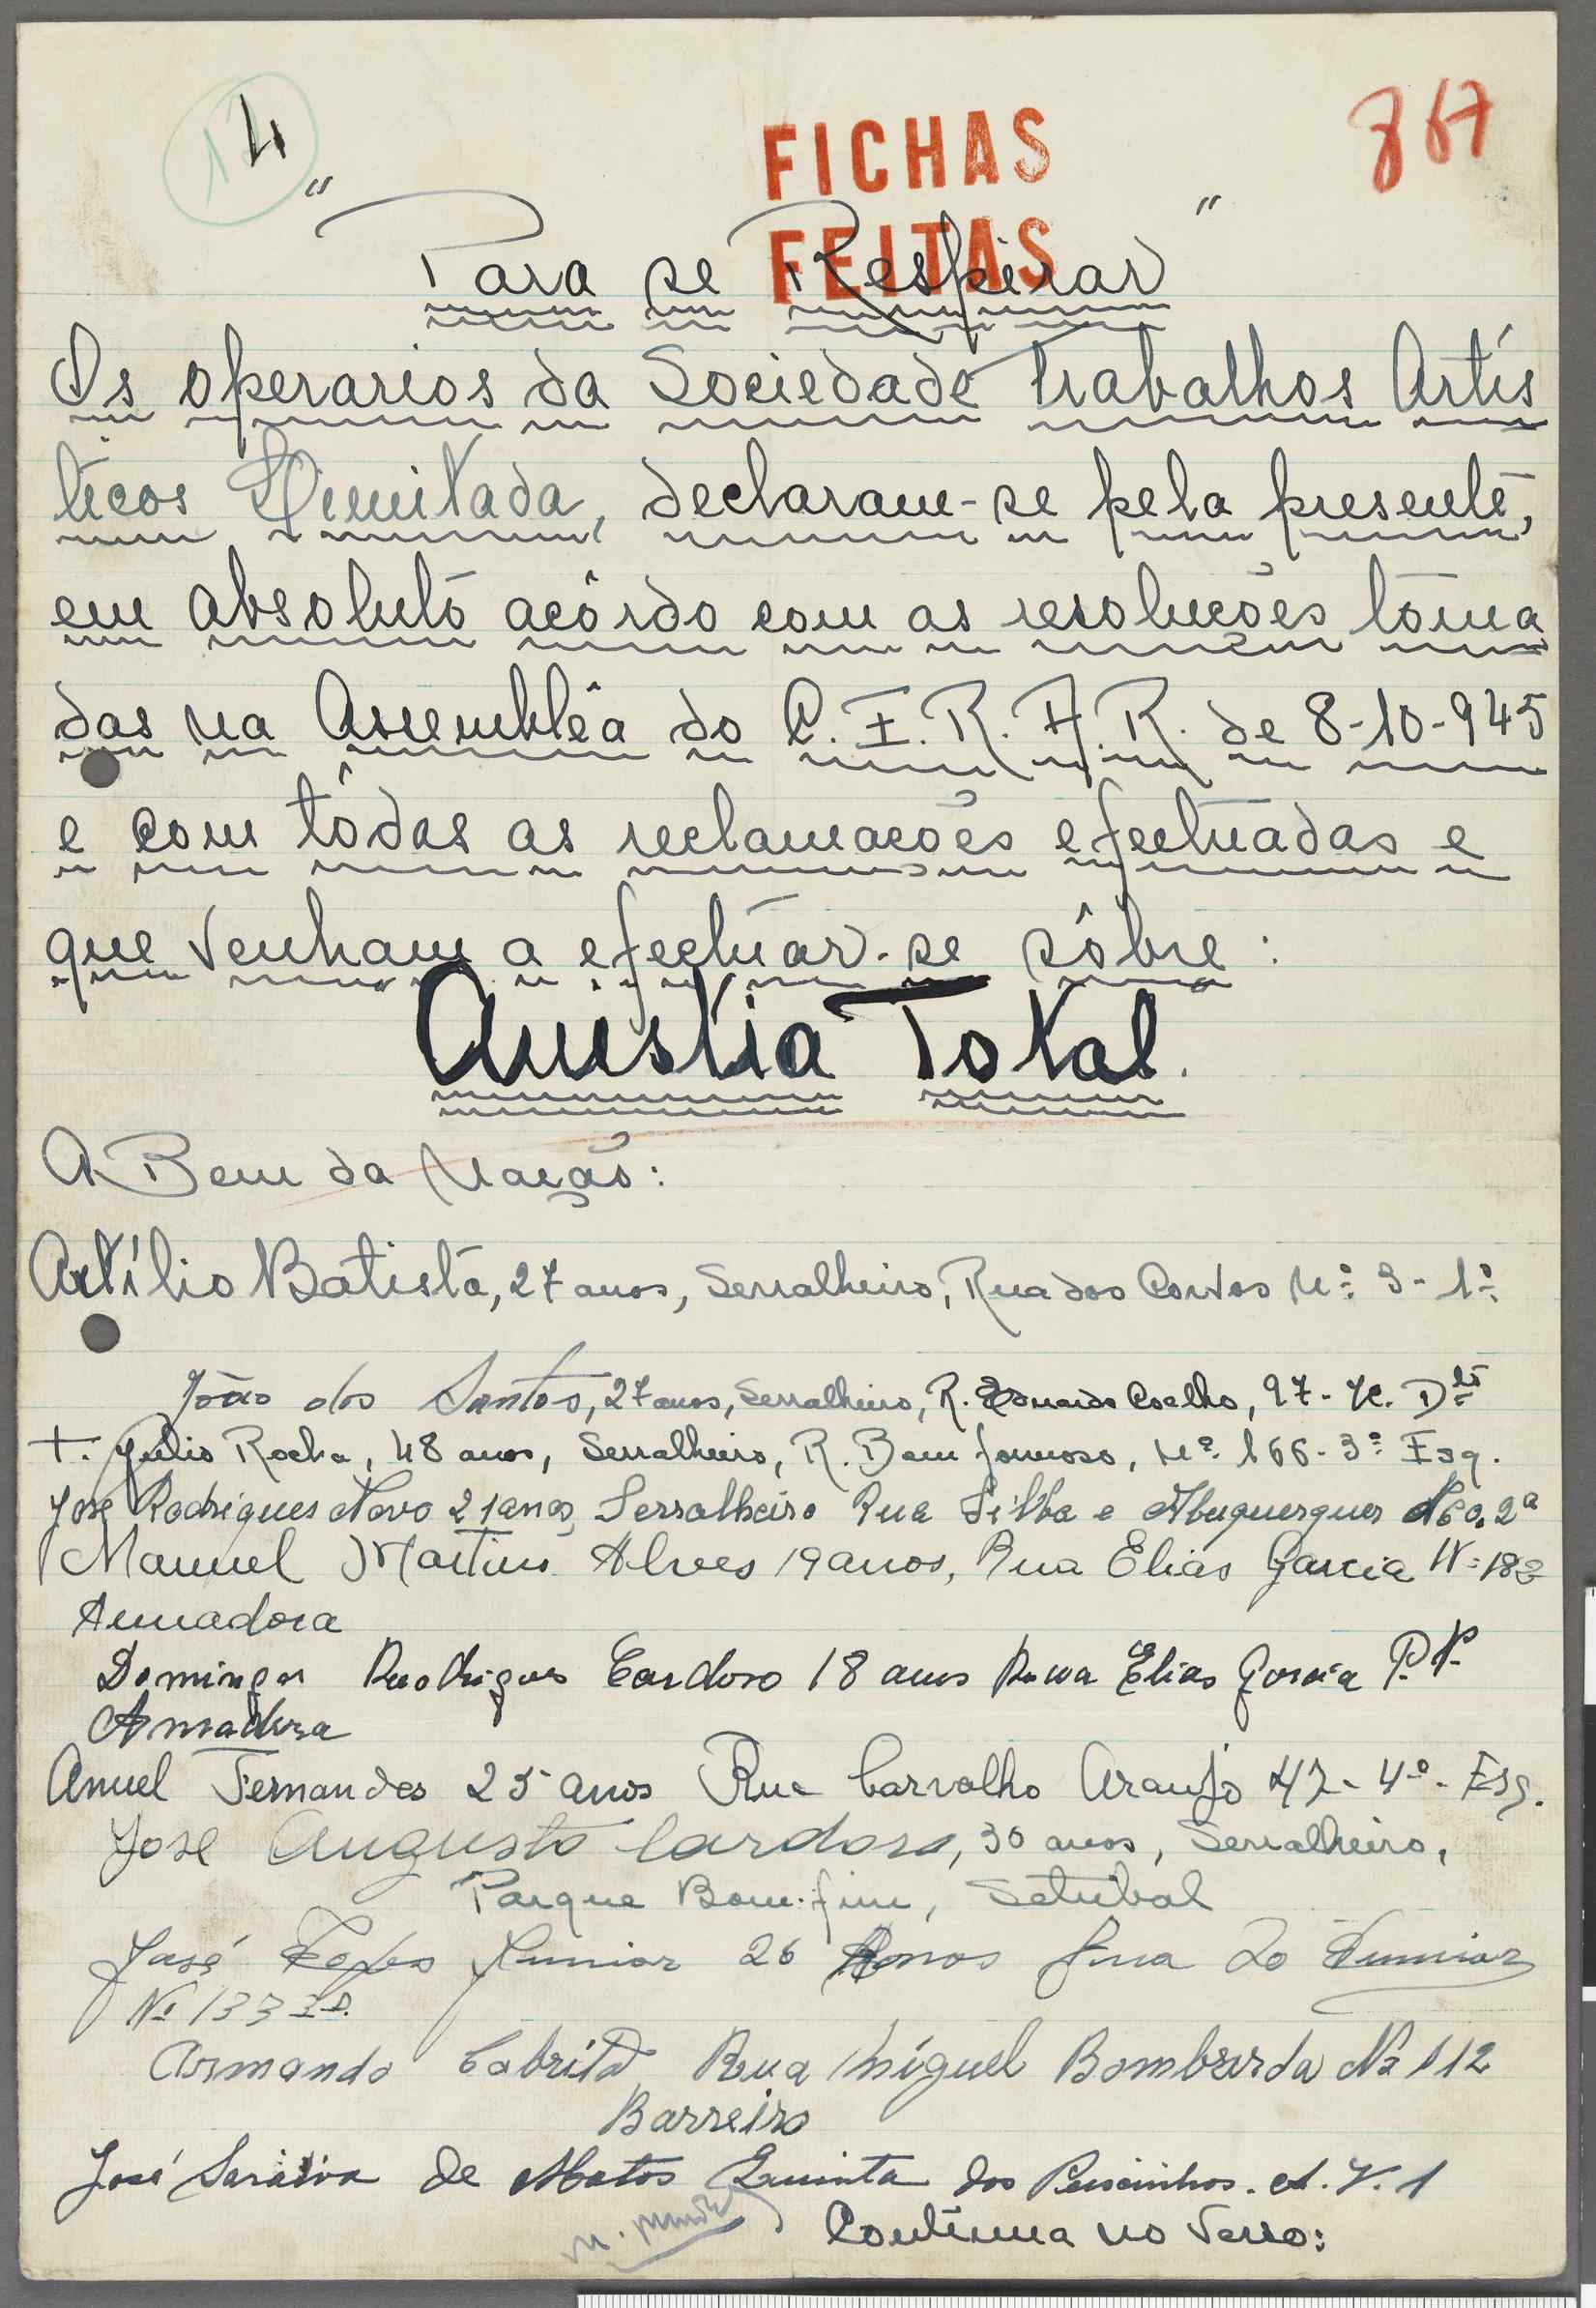 14
FICHAS
FEITAS
867
"Para se Respirar"
Os operarios da Sociedade Trabalhos Artís
ticos Limitada, declaram-se pela presente,
em absoluto acôrdo com as resoluções toma
das na Assemblêa do C. I. R. A. R. de 8-10-945
e com tôdas as reclamações efectuadas e
que venham a efectuar-se sôbre:
"Amistia Total".
A Bem da Nação:
Artílio Batista, 27 anos, Serralheiro, Rua dos Nº 3-1º
João dos Santos, 27 anos, Serralheiro, R. Eduardo Coelho, 97-
+. Julio Rocha, 48 anos, Serralheiro, R. Bem formoso, Nº 166-3º Esq.
José Rodrigues Novo 21 anos, Serralheiro Rua Silva e Albuquerques 2º
Manuel Martins Alves 19 anos, Rua Elias Garcia Nº 183
Amadora
Domingos Rodrigues Cardoso 18 anos Rua Elias Garcia P.N.
Amadora
Anuel Fernandes 25 anos Rua Carvalho Araujo 47-4º-Esq.
José Augusto Cardoso, 30 anos, Serralheiro,
Parque Bom-fim, Setubal
José Junior 26 Anos Rua do
Nº 133
Armando Cabrita Rua Miguel Bombarda Nº 112
Barreiro
José Saraiva de Matos Quinta dos
Contínua no Verso: